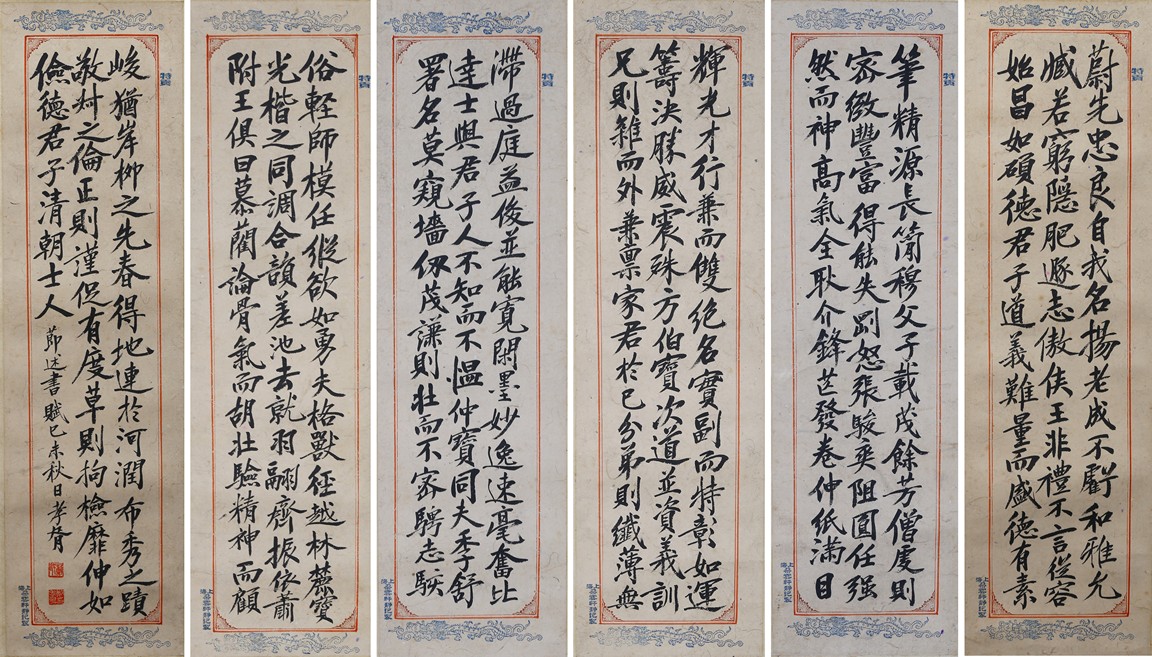 特貢
蔚先忠良自我名揚老成不虧和雅允
臧若窮隱肥遯志傲侯王非禮不言從容
始昌如碩德君子道義難量而盛德有素
特貢
筆精源長簡穆父子載茂餘芳僧虔則
密緻豐富得能失剛怒張駿爽阻圓任强
然而神高氣全耿介鋒芒發卷伸紙滿目
特貢
輝光才行兼而雙絕名實副而特彰如運
籌決勝威震殊方伯寶次道並資義訓
兄則雜而外兼稟家君於己分弟則纖薄無
特貢
滯過庭益俊並能寬閑墨妙逸速毫奮比
達士與君子人不知而不愠仲寶同夫季舒
署名莫窺墻仭茂謙則壯而不密騁志駭
特貢
俗輕師模任縱欲如勇夫格獸徑越林麓寶
光楷之同調合韻差池去就羽翮齊振依蕭
附王俱曰慕藺論骨氣而胡壯驗精神而顧
特貢
峻猶岸柳之先春得地連於河潤布秀之蹟
敬叔之倫正則謹促有度草則拘檢靡伸如
儉德君子清朝士人
節述書賦己未秋日孝胥